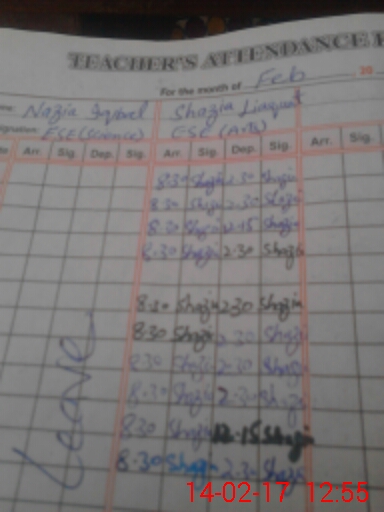 TEACHER'S ATTENDANCE
For the month of Feb 20
Name: Nazia Iqbal Shazia Liaquat
Designation: ESE (Science) ESE (Arts)
Arr. Sig. Dep. Sig. Arr. Sig. Dep. Sig. Arr. Sig.
8:30 Shazia 2:30 Shazia
8:30 Shazia 2:30 Shazia
8:30 Shazia 12:15 Shazia
8:30 Shazia 2:30 Shazia
8:30 Shazia 2:30 Shazia
8:30 Shazia 2:30 Shazia
8:30 Shazia 2:30 Shazia
8:30 Shazia 2:30 Shazia
8:30 Shazia 12:15 Shazia
8:30 Shazia 2:30 Shazia
Leave
14-02-17 12:55